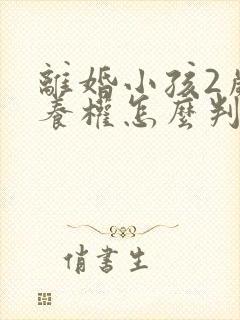 離婚小孩2歲
養權怎麼判
俏書生